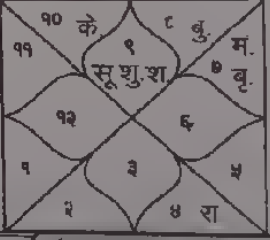 १० के. ८ बु.
११ ९ मं.
सू शु. श. ७ बृ.
१२ ६
१ ३ ५
२ ४ रा